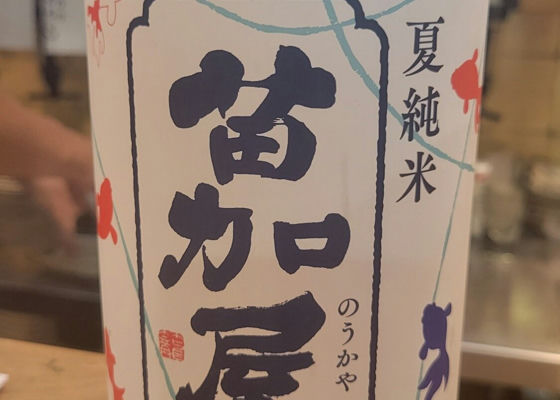 夏純米
苗加屋
のうかや